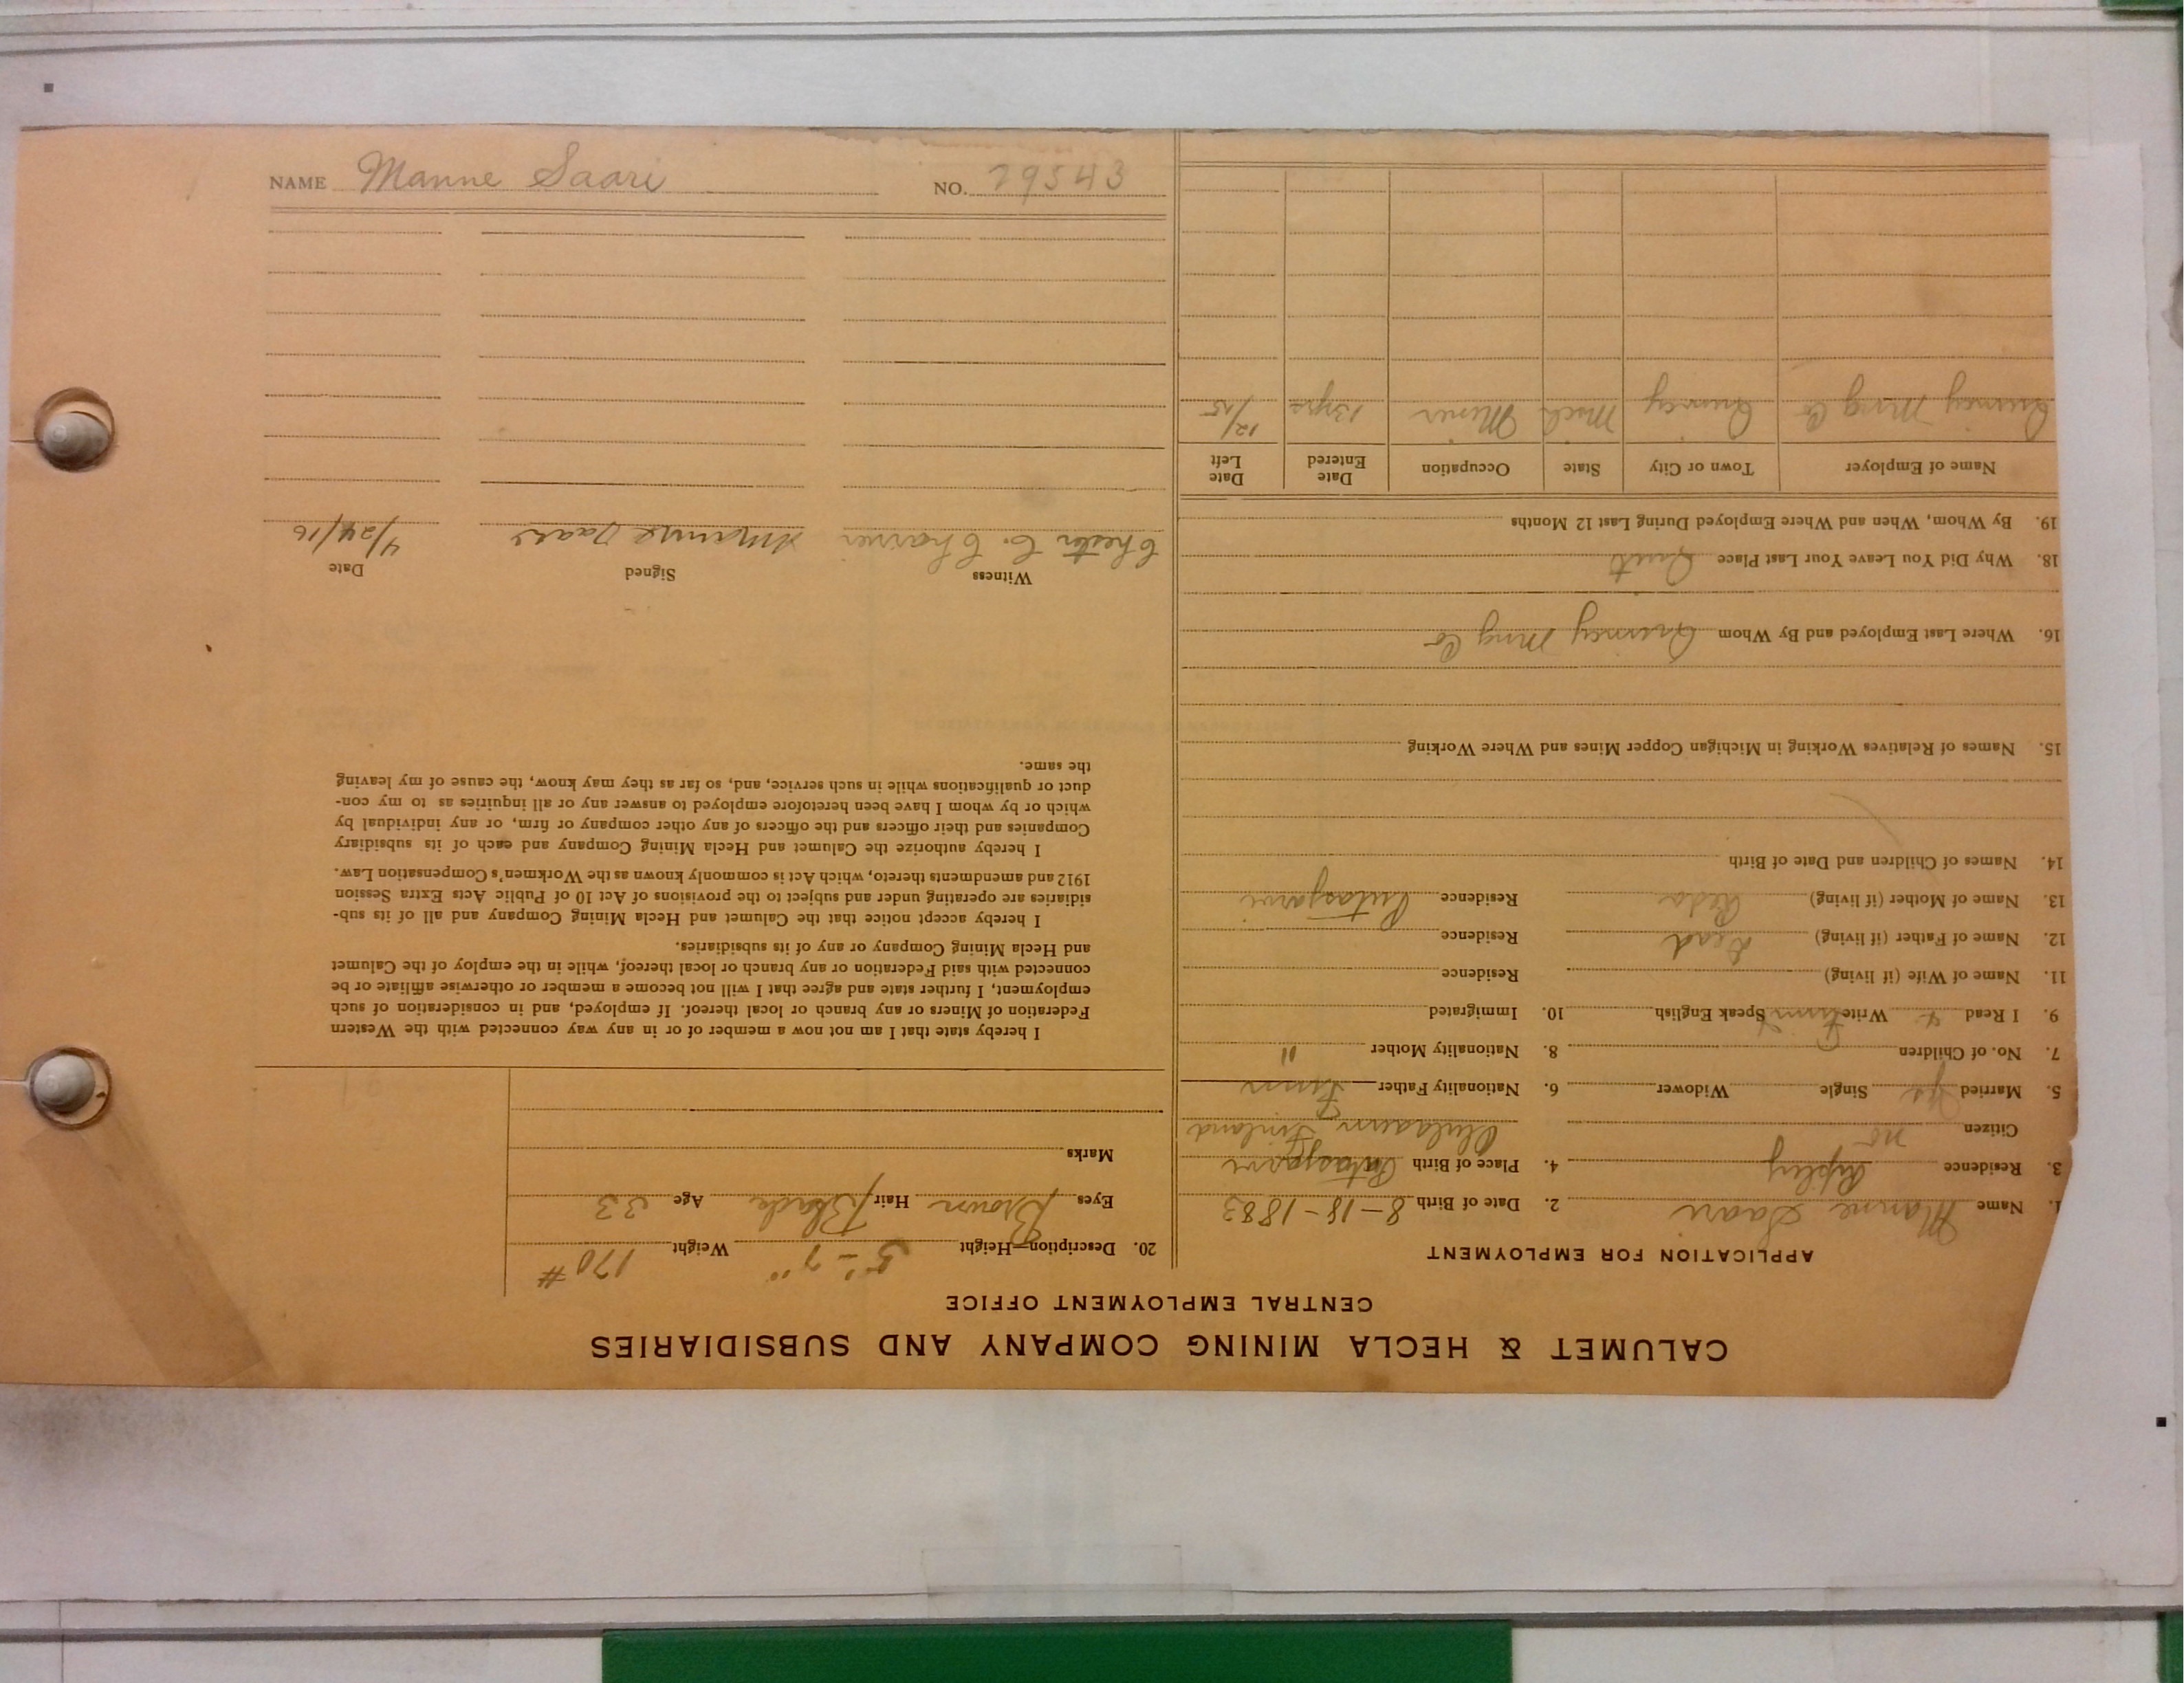 CALUMET & HECLA MINING COMPANY AND SUBSIDIARIES
CENTRAL EMPLOYMENT OFFICE
APPLICATION FOR EMPLOYMENT
1. Name Manne Saari 2. Date of Birth 8-18-1883
3. Residence Ripley 4. Place of Birth
Citizen no Finland
5. Married Yes Single Widower 6. Nationality Father Finn
7. No. of Children 8. Nationality Mother "
9. I Read Write Speak English 10. Immigrated
11. Name of Wife (if living) Residence
12. Name of Father (if living) Dead Residence
13. Name of Mother (if living) Residence
14. Names of Children and Date of Birth
15. Names of Relatives Working in Michigan Copper Mines and Where Working
16. Where Last Employed and By Whom Quincy Mng Co
18. Why Did You Leave Your Last Place Quit
19. By Whom, When and Where Employed During Last 12 Months
Name of Employer Town or City State Occupation Date Entered Date Left
Quincy Mng Co Quincy Mich Miner 13 yrs 12/15
20. Description—Height 5'-7" Weight 170 #
Eyes Brown Hair Black Age 33
Marks
I hereby state that I am not now a member of or in any way connected with the Western
Federation of Miners or any branch or local thereof. If employed, and in consideration of such
employment, I further state and agree that I will not become a member or otherwise affiliate or be
connected with said Federation or any branch or local thereof, while in the employ of the Calumet
and Hecla Mining Company or any of its subsidiaries.
I hereby accept notice that the Calumet and Hecla Mining Company and all of its sub-
sidiaries are operating under and subject to the provisions of Act 10 of Public Acts Extra Session
1912 and amendments thereto, which Act is commonly known as the Workmen's Compensation Law.
I hereby authorize the Calumet and Hecla Mining Company and each of its subsidiary
Companies and their officers and the officers of any other company or firm, or any individual by
which or by whom I have been heretofore employed to answer any or all inquiries as to my con-
duct or qualifications while in such service, and, so far as they may know, the cause of my leaving
the same.
Witness Signed Date
Chester C. Manne Saari 4/24/16
NAME Manne Saari NO. 29543